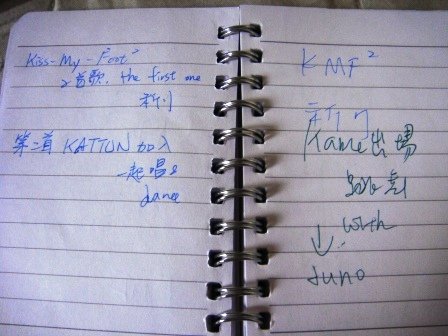 Kiss-My-Foot²
2首歌, the first one
新
第二首 KATTUN 加入
一起唱&
dance
KMF²
新
Kame出場
with
↓
Juno